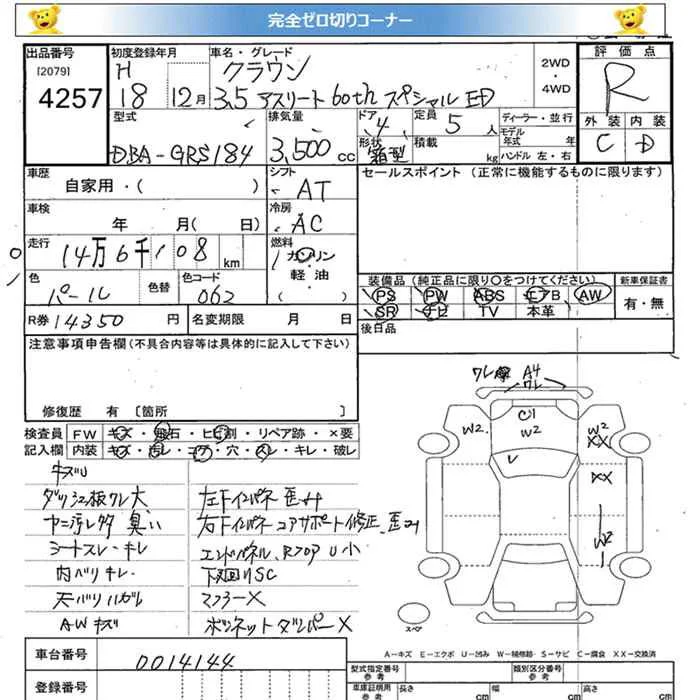 完全ゼロ切りコーナー
出品番号 初度登録年月 車名・グレード 2WD ・ 4WD 評価点
[2079] H クラウン R
4257 18 12月 3.5 アスリート 60th スペシャル ED
型式 排気量 ドア 4 定員 5 人 ディーラー・並行 外装 内装
DBA-GRS184 3,500 cc 形状 箱型 積載 kg モデル年式 年 ハンドル 左・右 C D
車歴 シフト セールスポイント (正常に機能するものに限ります)
自家用・( ) AT
車検 冷房
年 月( 日) AC
走行 14万6千108 km 燃料 ガソリン
色 色替 色コード 軽・油 装備品 (純正品に限り〇をつけてください) 新車保証書
パール 062 ( ) PS PW ABS エアB AW 有・無
R券 14350 円 名変期限 月 日 SR ナビ TV 本革
後日品
注意事項申告欄 (不具合内容等は具体的に記入して下さい)
修復歴 有 〔箇所 〕
ワレ A4
ワレ
検査員 FW キズ・飛石・ヒビ割・リペア跡・×要
記入欄 内装 キズ・汚レ・コゲ・穴・スレ・キレ・破レ
C1
W2 W2 W2
XX
XX
W2
キズU
ダッシュ板ワレ大 左下インパネ歪ｻﾋ
ヤニ汚レ多 臭い 右下インパネ コアサポート修正、歪
シートスレ・キレ エンドパネル、Rフロア U小
内バリキレ 下廻りSC
天バリハガレ マフラーX
AWキズ ボンネットダンパーX
スペア
A-キズ E-エクボ U-凹み W-補修跡・S-サビ C-腐食 XX-交換済
車台番号 0014144 型式指定番号 参考 類別区分番号 参考
車庫証明用 参考 長さ cm 幅 cm 高さ cm